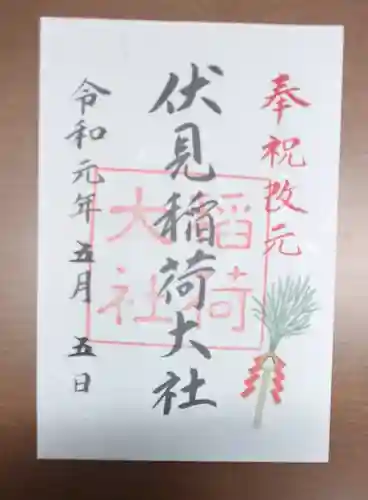 奉祝改元
伏見稲荷大社
稲荷
大社
令和元年五月五日